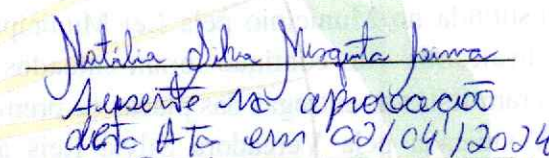 Natália Silva Mesquita Lima
Ausente na aprovação
desta Ata em 02/04/2024